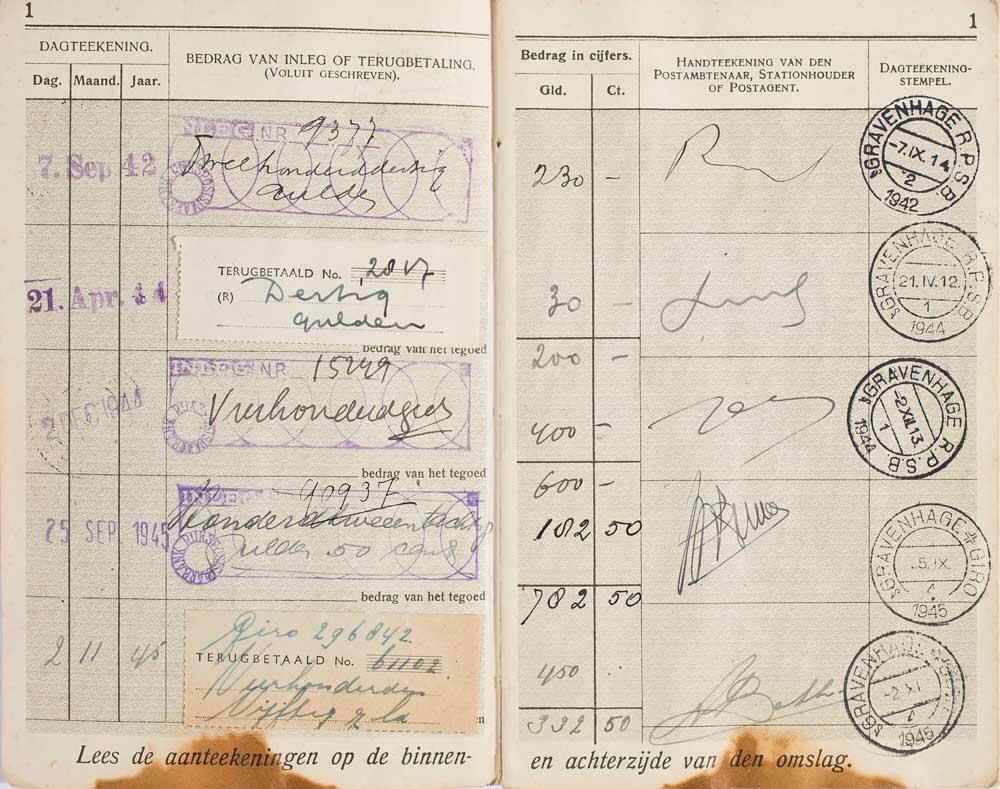 1
DAGTEEKENING.
Dag. Maand. Jaar.
BEDRAG VAN INLEG OF TERUGBETALING.
(VOLUIT GESCHREVEN).
7. Sep 42
INLEG NR 9377
Tweehonderddertig
gulden
21. Apr. 44
TERUGBETAALD No. 2817
(R) Dertig
gulden
bedrag van het tegoed
2 DEC 1944
INLEG NR 15249
Vierhonderd
bedrag van het tegoed
25 SEP. 1945
INLEG 90937
Honderdtweeentachtig
Gulden 50 cent
bedrag van het tegoed
2 11 45
Giro 296842
TERUGBETAALD No. 61102
Vierhonderd
Vijftig
Lees de aanteekeningen op de binnen-
1
Bedrag in cijfers.
Gld. Ct.
HANDTEEKENING VAN DEN
POSTAMBTENAAR, STATIONHOUDER
OF POSTAGENT.
DAGTEEKENING-
STEMPEL.
230 -
'SGRAVENHAGE R.P.S.B
-7.IX.14
2
1942
30 -
'SGRAVENHAGE R.P.S.B
21.IV.12.
1
1944
200 -
400 -
'SGRAVENHAGE R.P.S.B
-2.XII.13.
1
1944
600 -
182 50
'SGRAVENHAGE GIRO
5.IX.
1945
782 50
450
'SGRAVENHAGE
-2.XI
1945
332 50
en achterzijde van den omslag.